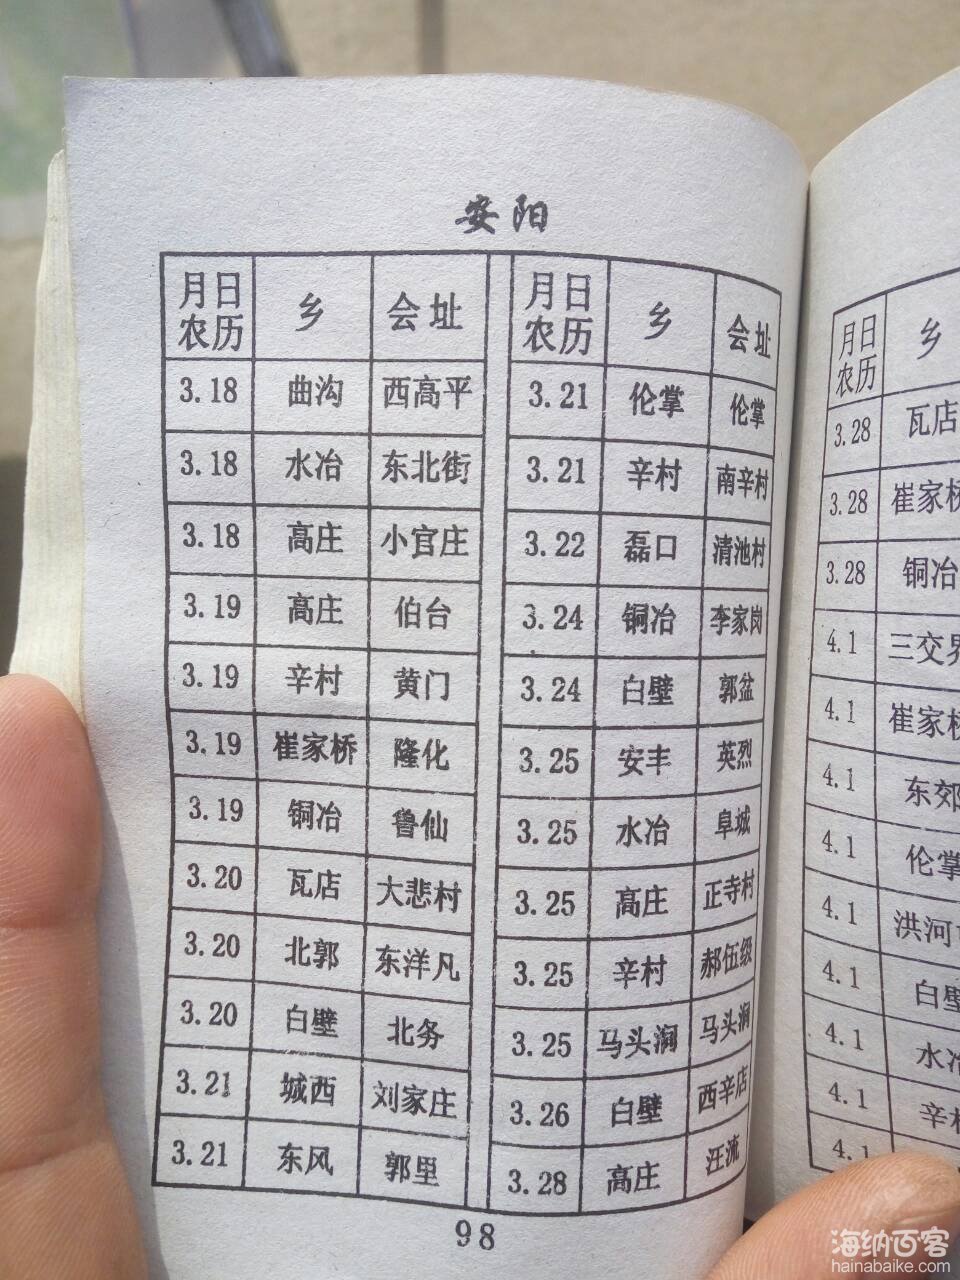 安阳
月日农历 乡 会址
3.18 曲沟 西高平
3.18 水冶 东北街
3.18 高庄 小官庄
3.19 高庄 伯台
3.19 辛村 黄门
3.19 崔家桥 隆化
3.19 铜冶 鲁仙
3.20 瓦店 大悲村
3.20 北郭 东洋凡
3.20 白壁 北务
3.21 城西 刘家庄
3.21 东风 郭里
月日农历 乡 会址
3.21 伦掌 伦掌
3.21 辛村 南辛村
3.22 磊口 清池村
3.24 铜冶 李家岗
3.24 白壁 郭盆
3.25 安丰 英烈
3.25 水冶 阜城
3.25 高庄 正寺村
3.25 辛村 郝伍级
3.25 马头涧 马头涧
3.26 白壁 西辛店
3.28 高庄 汪流
98
月日农历 乡
3.28 瓦店
3.28 崔家桥
3.28 铜冶
4.1 三交界
4.1 崔家桥
4.1 东郊
4.1 伦掌
4.1 洪河
4.1 白壁
4.1 水冶
4.1 辛村
4.1
海纳百客
hainabaike.com